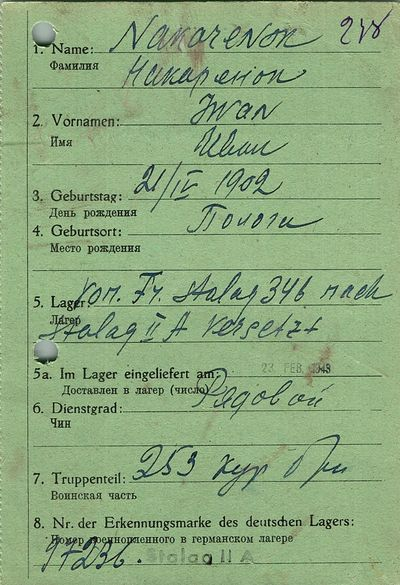 1. Name: Nakarenok 278
Фамилия Накаренок
2. Vornamen: Iwan
Имя Иван
3. Geburtstag: 21/IV 1902
День рождения
4. Geburtsort: Пологи
Место рождения
5. Lager: Vom. Fr. Stalag 346 nach
Лагер Stalag II A versetzt
5a. Im Lager eingeliefert am: 23 ФЕВ. 1943
Доставлен в лагер (число)
6. Dienstgrad: Рядовой
Чин
7. Truppenteil: 253
Воинская часть
8. Nr. der Erkennungsmarke des deutschen Lagers:
Номер военнопленного в германском лагере
97236. Stalag II A